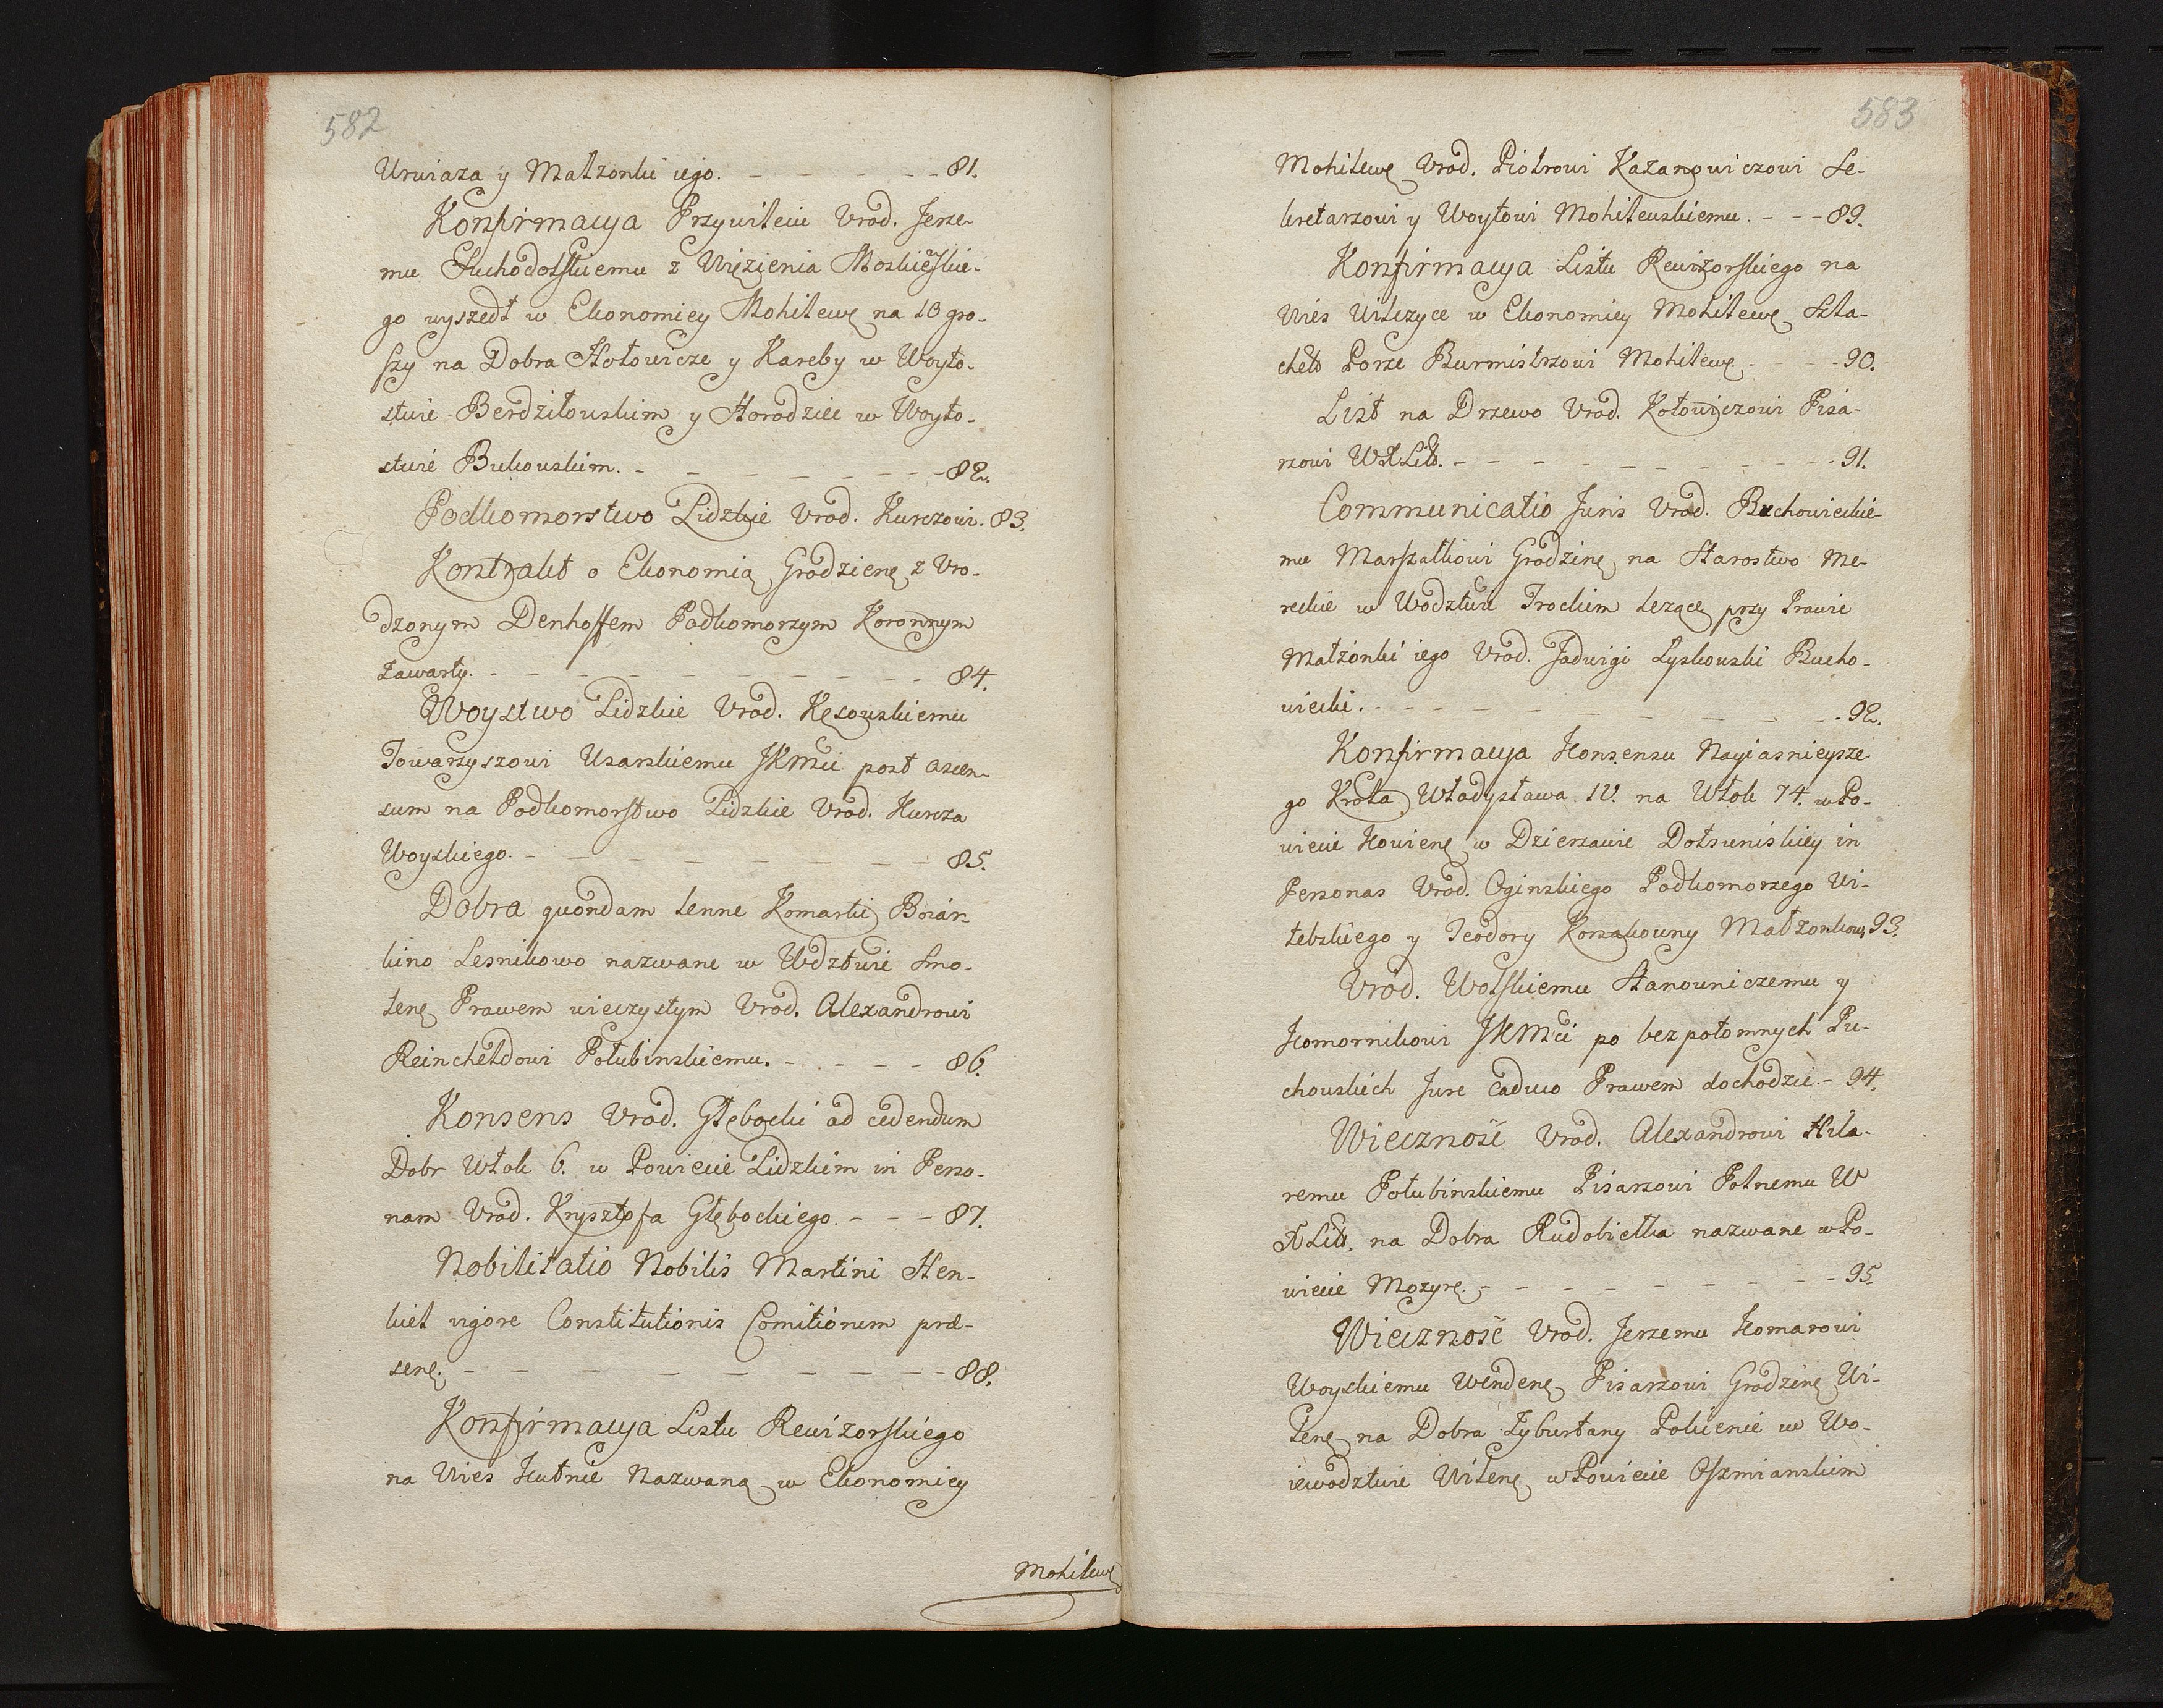 582
Unwiaza y Małzonki iego. – – – – – – 81.
Konfirmacya Przywileiu Urod. Jerze-
mu Suchodolskiemu z Więzienia Moskiewskie-
go wyszedł w Ekonomiey Mohilewę na 10 gro-
szy na Dobra Hołowicze y Kareby w Woyto-
stwie Berdziłowskim y Horodziec w Woyto-
stwie Bukowskim. – – – – – – – 82.
Podkomorstwo Lidzkie Urod. Kurczowi. 83.
Kontrakt o Ekonomią Grodzienę z Uro-
dzonym Denhoffem Podkomorzym Koronnym
zawarty. – – – – – – – – – – 84.
Woystwo Lidzkie Urod. Kęsowskiemu
Towarzyszowi Usarskiemu JKMci post ascen-
sum na Podkomorstwo Lidzkie Urod. Kurcza
Woyskiego. – – – – – – – – – 85.
Dobra quondam lenne Komarki Boiár-
kino Lesnikowo nazwane w Wdztwie Smo-
lenę Prawem wieczystym Urod. Alexandrowi
Reincheldowi Połubinskiemu. – – – – – 86.
Konsens Urod. Głębocki ad cedendum
Dobr Włok 6. w Powiecie Lidzkim in Perso-
nam Urod. Krysztofa Głębockiego. – – – 87.
Nobilitatio Nobilis Martini Hen-
kiel vigore Constitutionis Comitiorum præ-
senę. – – – – – – – – – – 88.
Konfirmacya Listu Rewizorskiego
na Wies Kutnie Nazwaną w Ekonomiey
Mohilewę
583
Mohilewę Urod. Piotrowi Kazanowiczowi Se-
kretarzowi y Woytowi Mohilewskiemu. – – – 89.
Konfirmacya Listu Rewizorskiego na
Wies Wilczyce w Ekonomiey Mohilewę Szla-
chetō Porze Burmistrzowi Mohilewę. – – – 90.
List na Drzewo Urod. Kotowiczowi Pisa-
rzowi WXLitō. – – – – – – – – – 91.
Communicatio Juris Urod. Buchowieckie-
mu Marszałkowi Grodzinę na Starostwo Me-
reckie w Wodztwie Trockim lezącę przy Prawie
Małzonki iego Urod. Jadwigi Lyskowski Bucho-
wiecki. – – – – – – – – – – 92.
Konfirmacya Konsensu Nayiasnieysze-
go Krola Władysława IV. na Włok 74. w Po-
wiecie Kowienę w Dzierzawie Dotsuniskiey in
Personas Urod. Oginskiego Podkomorzego Wi-
tebskiego y Teodory Korsakowny Małzonkow 93.
Urod. Wolskiemu Stanowniczemu y
Komornikowi JKMci po bezpotomnych Pu-
chowskich Jure Caduco Prawem dochodzic. – 94.
Wieczność Urod. Alexandrowi Hila-
remu Połubinskiemu Pisarzowi Polnemu W
XLitō. na Dobra Rudobiełka nazwane w Po-
wiecie Mozyrę. – – – – – – – – 95.
Wieczność Urod. Jerzemu Komarowi
Woyskiemu Wendenę Pisarzowi Grodzinę Wi-
lenę na Dobra Zyburtany Pokienie w Wo-
iewodztwie Wilenę w Powiecie Oszmianskim